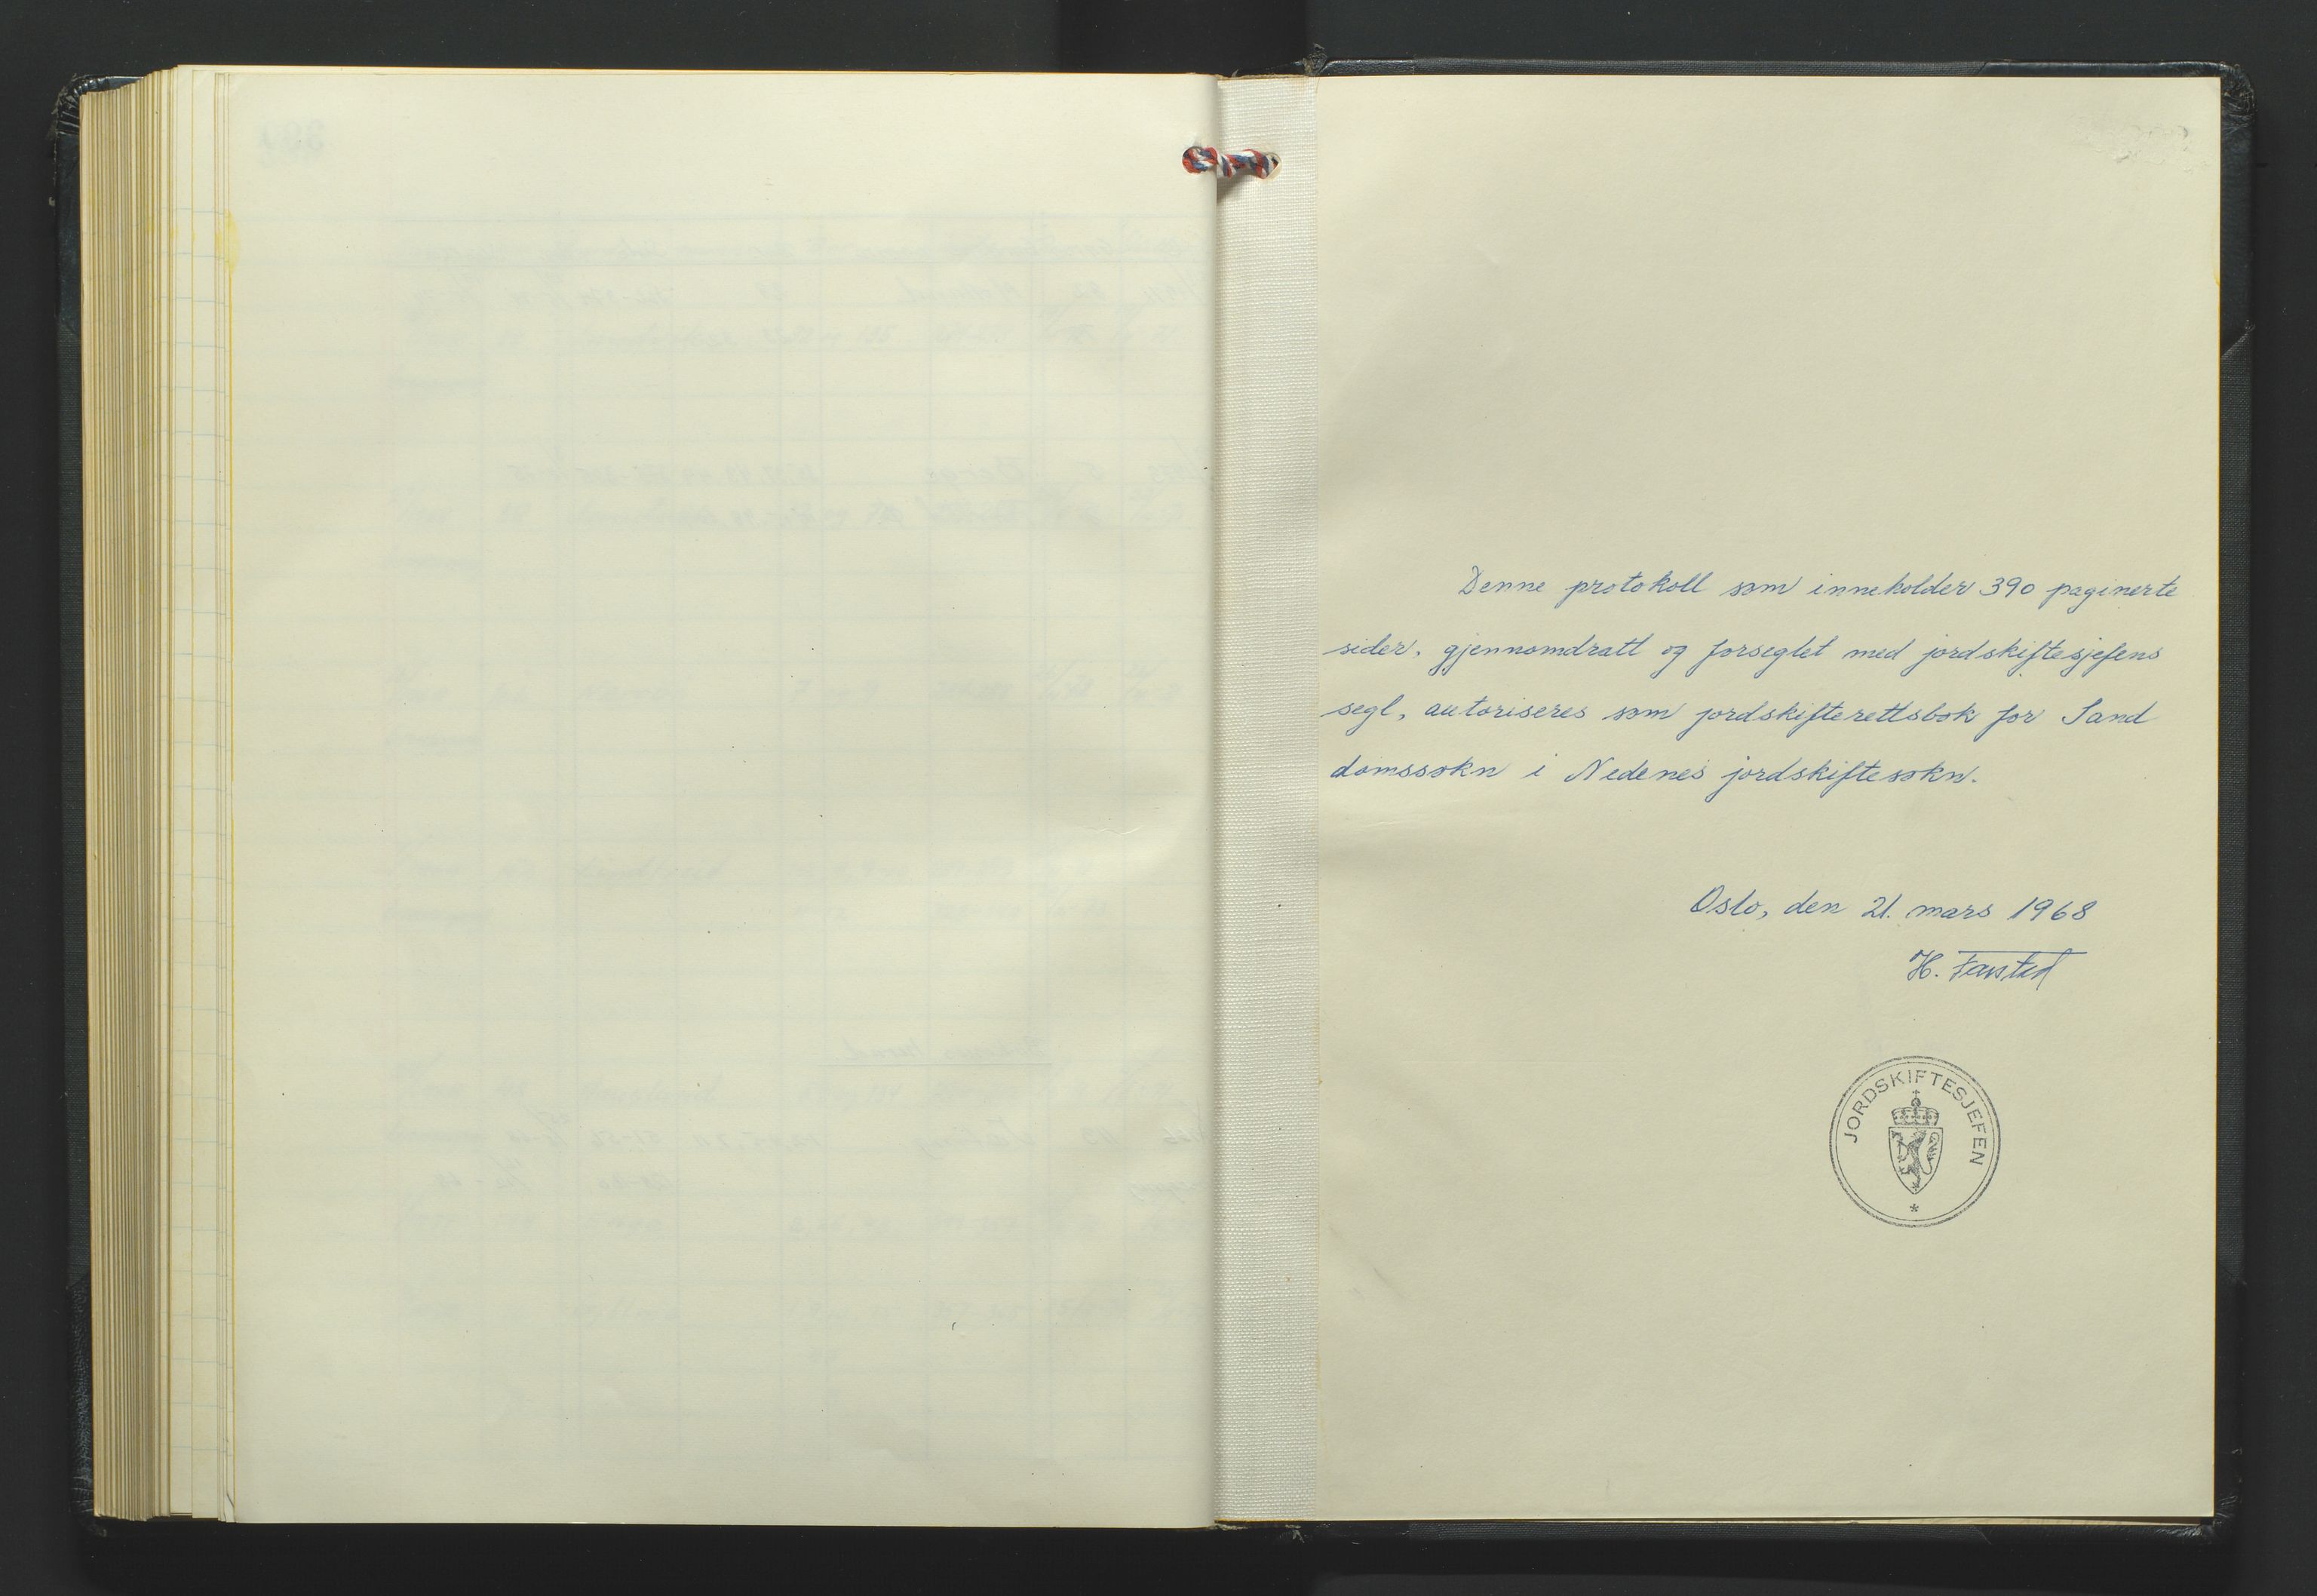 Denne protokoll som inneholder 390 paginerte
sider, gjennomdratt og forseglet med jordskiftesjefens
segl, autoriseres som jordskifterettsbok for Sand
domssokn i Nedenes jordskiftesokn.
Oslo, den 21. mars 1968
H.
JORDSKIFTESJEFEN
*